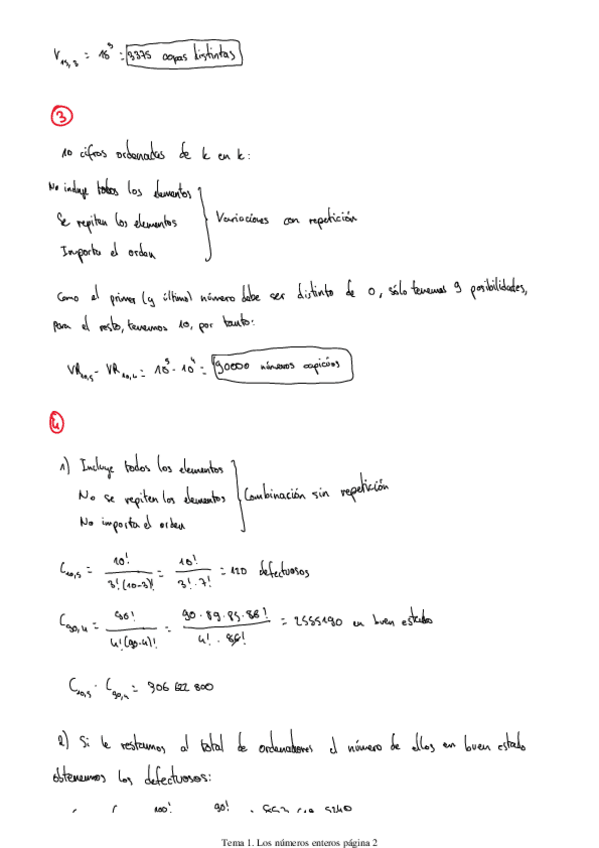 V₁₅,₃ = 15³ = 3375 copas distintas
3
10 cifras ordenadas de k en k:
No incluye todos los elementos
Se repiten los elementos
Importa el orden
Variaciones con repetición
Como el primer (y último) número debe ser distinto de 0, sólo tenemos 9 posibilidades,
para el resto, tenemos 10, por tanto:
VR₁₀,₅ - VR₁₀,₄ = 10⁵ - 10⁴ = 90000 números capicúos
4
1) Incluye todos los elementos
No se repiten los elementos
No importa el orden
Combinación sin repetición
C₁₀,₅ = 10! / 3!(10-3)! = 10! / 3!·7! = 120 defectuosos
C₉₀,₄ = 90! / 4!(90-4)! = 90·89·85·86! / 4!·86! = 2555190 en buen estado
C₁₀,₅ · C₉₀,₄ = 306 622 800
2) Si le restamos al total de ordenadores el número de ellos en buen estado
obtenemos los defectuosos:
100! 90!
Tema 1. Los números enteros página 2